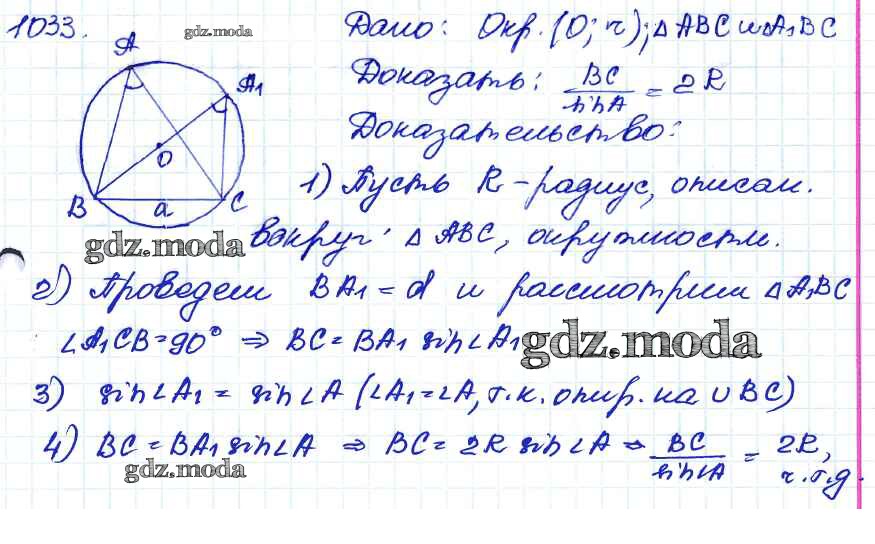 1033.
gdz.moda
Дано: Окр. (O; r); △ABC и △A₁BC
A
A₁
O
B
a
C
Доказать: BC/sinA = 2R
Доказательство:
1) Пусть R - радиус, описан.
gdz.moda
вокруг △ABC, окружности.
2) Проведем BA₁ = d и рассмотрим △A₁BC
∠A₁CB = 90° ⇒ BC = BA₁ sin∠A₁
gdz.moda
3) sin∠A₁ = sin∠A (∠A₁ = ∠A, т.к. опир. на ∪BC)
4) BC = BA₁ sin∠A ⇒ BC = 2R sin∠A ⇒ BC/sin∠A = 2R,
gdz.moda
ч.т.д.